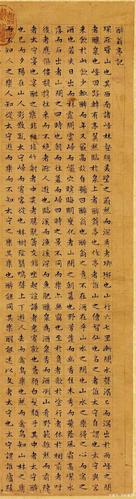 醉翁亭記
環滁皆山也其西南諸峰林壑尤美望之蔚然而深秀者瑯琊也山行六七里漸聞水聲潺潺而瀉出于兩峰之間
者釀泉也峰回路轉有亭翼然臨于泉上者醉翁亭也作亭者誰山之僧智僊也名之者誰太守自謂也太守與客
來飲于此飲少輒醉而年又最高故自號曰醉翁也醉翁之意不在酒在乎山水之間也山水之樂得之心而寓之酒也若夫
日出而林霏開雲歸而巖穴暝晦明變化者山間之朝暮也野芳發而幽香佳木秀而繁陰風霜高潔水
落而石出者山間之四時也朝而往暮而歸四時之景不同而樂亦無窮也至於負者歌于塗行者休于樹前者呼
後者應傴僂提攜往來而不絕者滁人遊也臨谿而漁谿深而魚肥釀泉為酒泉香而酒洌山肴野蔌雜然而前陳
者太守宴也宴酣之樂非絲非竹射者中弈者勝觥籌交錯起坐而諠譁者眾賓懽也蒼顏白髮頹乎其中者太守醉
也已而夕陽在山人影散亂太守歸而賓客從也樹林陰翳鳴聲上下遊人去而禽鳥樂也然而禽鳥知山林
之樂而不知人之樂人知從太守遊而樂而不知太守之樂其樂也醉能同其樂醒能述以文者太守也太守謂誰廬